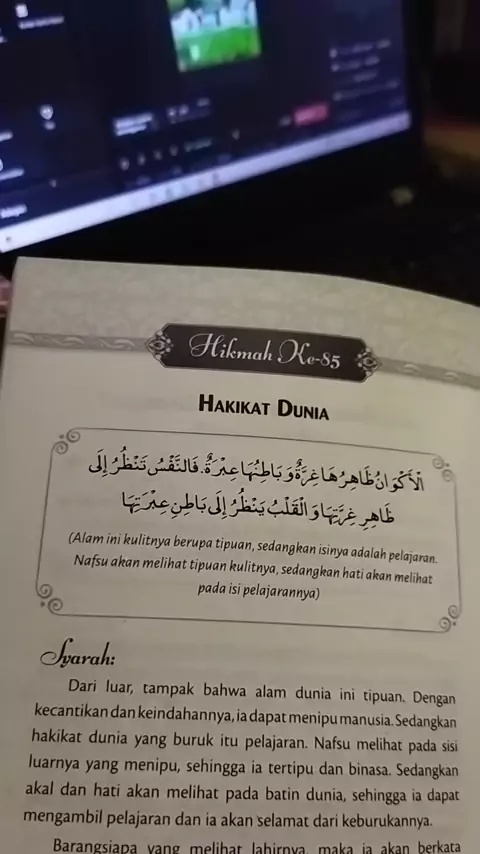 Hikmah Ke-85
HAKIKAT DUNIA
الْأَكْوَانُ ظَاهِرُهَا غِرَّةٌ وَ بَاطِنُهَا عِبْرَةٌ. فَالنَّفْسُ تَنْظُرُ إِلَى
ظَاهِرِ غِرَّتِهَا وَ الْقَلْبُ يَنْظُرُ إِلَى بَاطِنِ عِبْرَتِهَا
(Alam ini kulitnya berupa tipuan, sedangkan isinya adalah pelajaran.
Nafsu akan melihat tipuan kulitnya, sedangkan hati akan melihat
pada isi pelajarannya)
Syarah:
Dari luar, tampak bahwa alam dunia ini tipuan. Dengan
kecantikan dan keindahannya, ia dapat menipu manusia. Sedangkan
hakikat dunia yang buruk itu pelajaran. Nafsu melihat pada sisi
luarnya yang menipu, sehingga ia tertipu dan binasa. Sedangkan
akal dan hati akan melihat pada batin dunia, sehingga ia dapat
mengambil pelajaran dan ia akan selamat dari keburukannya.
Barangsiapa yang melihat lahirnya, maka ia akan berkata